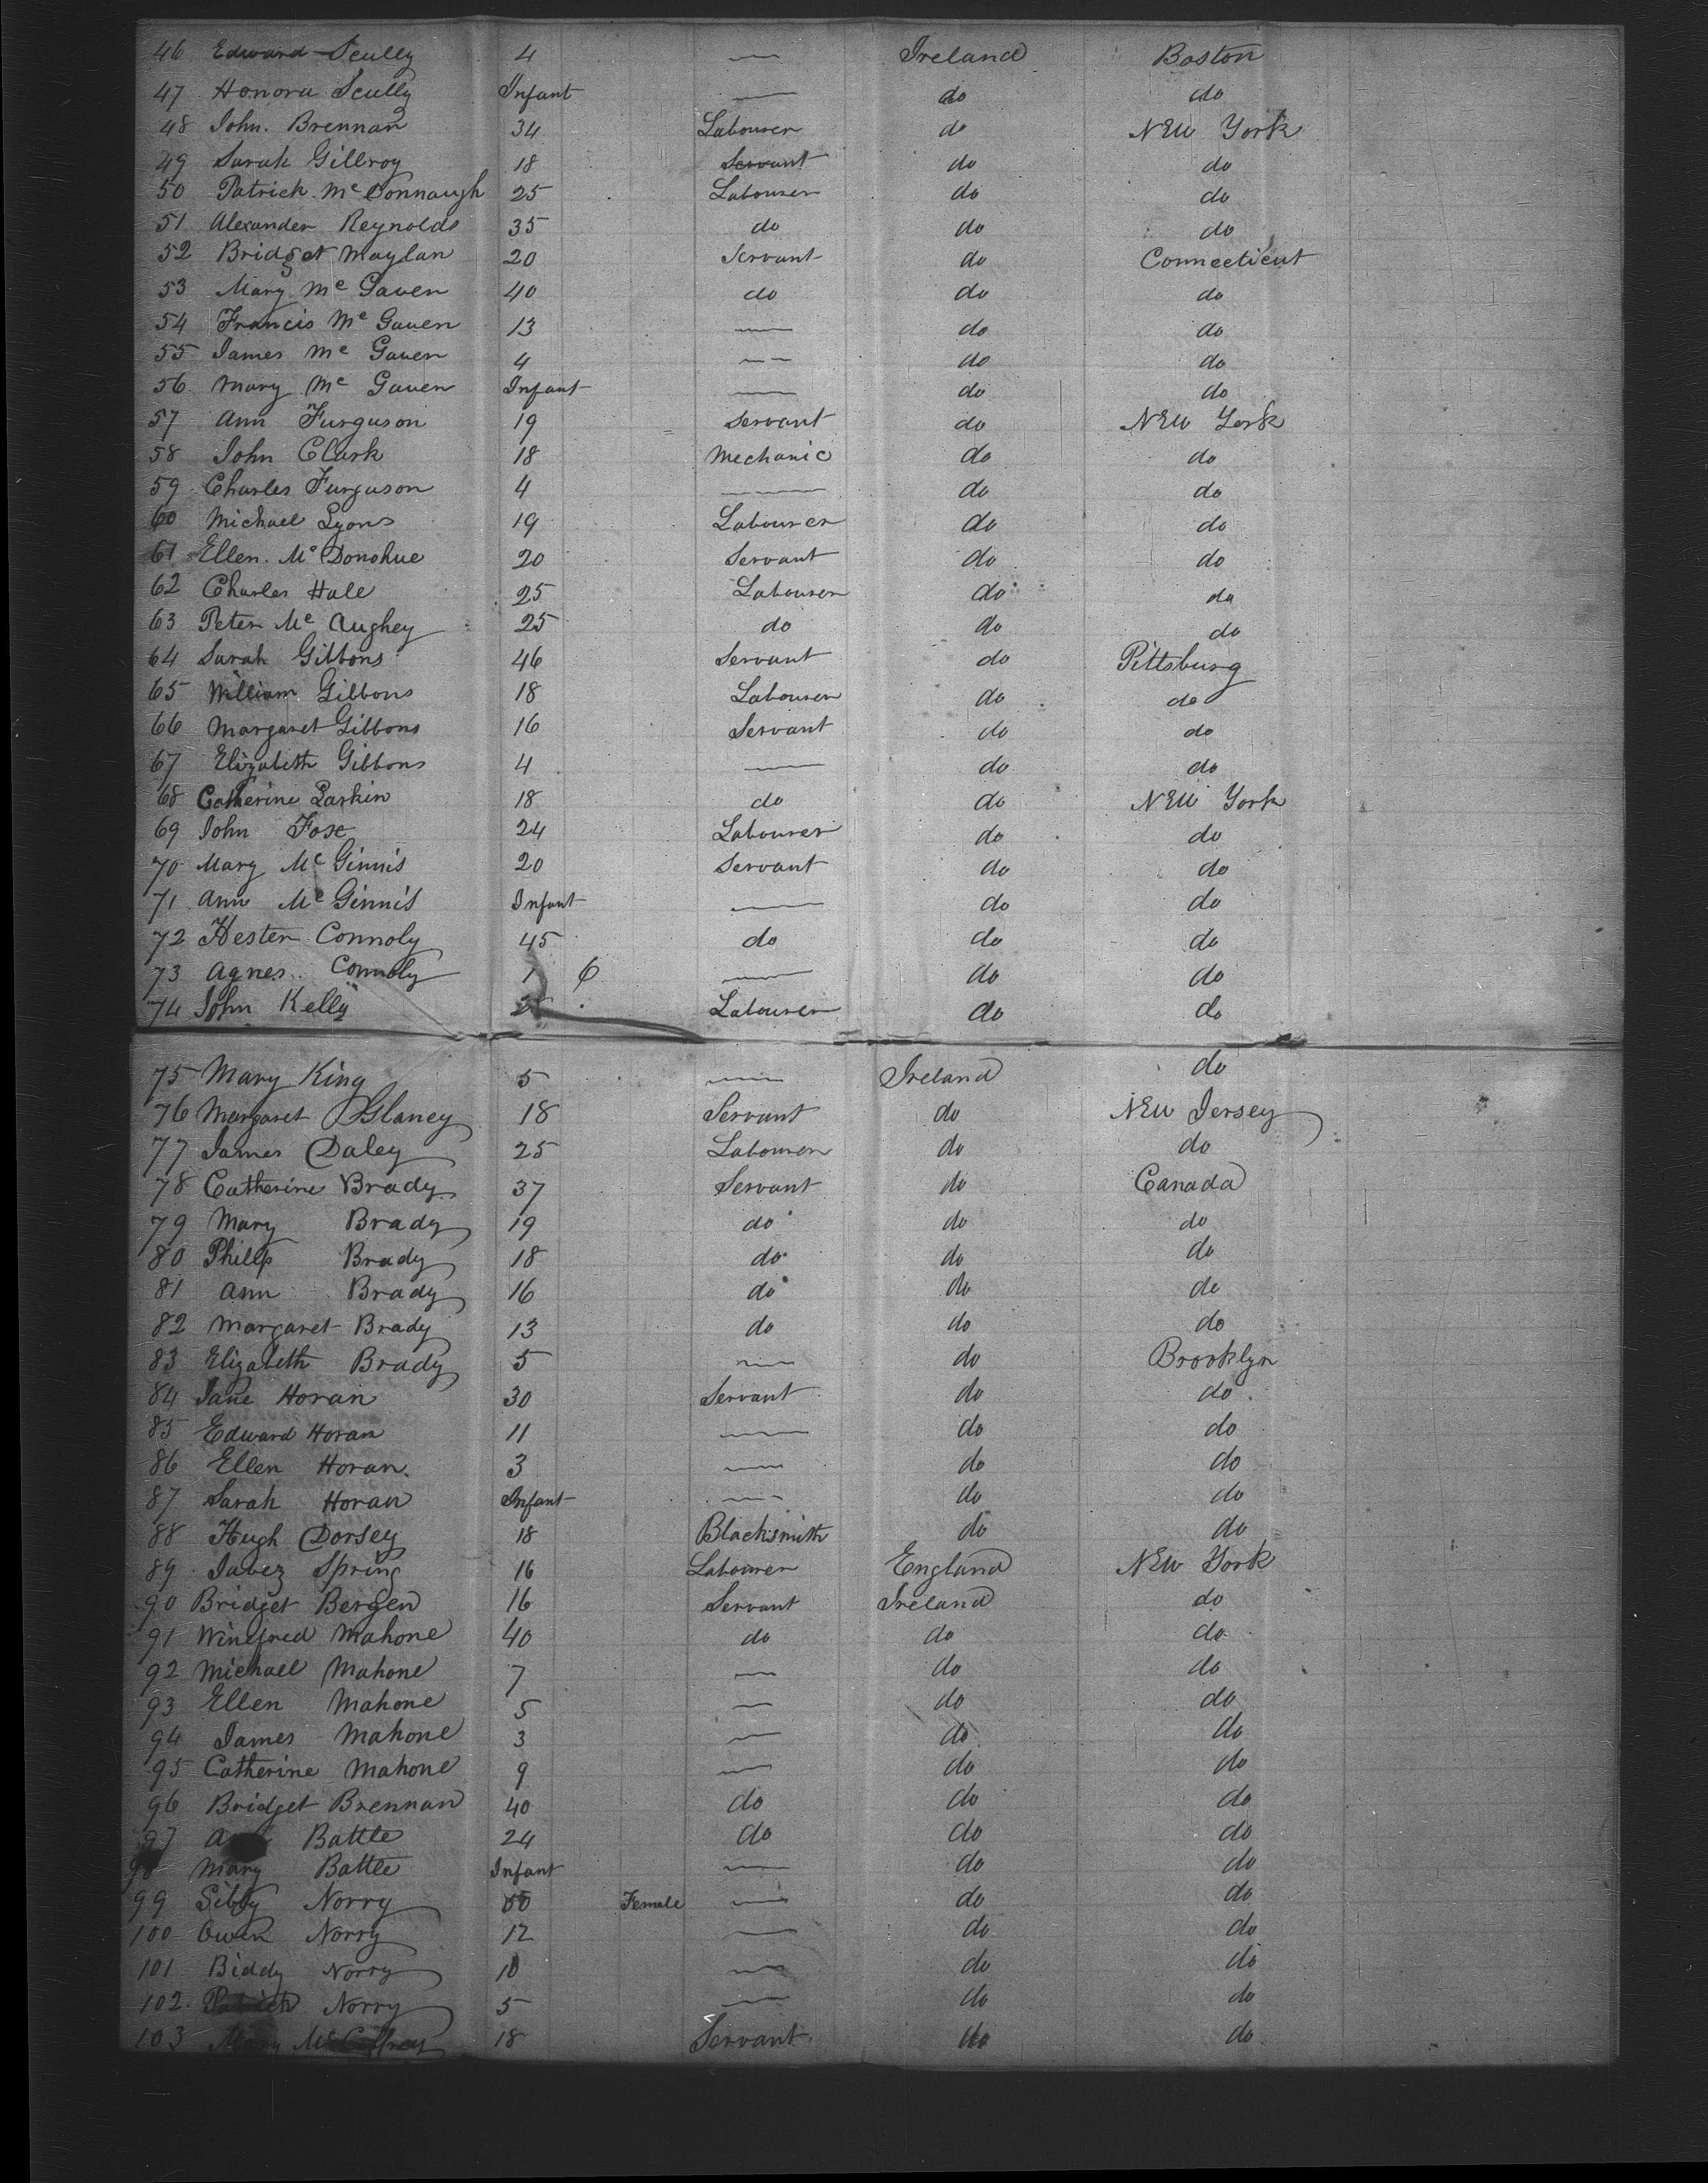 46 Edward Scully 4 — Ireland Boston
47 Honora Scully Infant — do do
48 John. Brennan 34 Labourer do New York
49 Sarah Gillroy 18 Servant do do
50 Patrick Mc Connaugh 25 Labourer do do
51 Alexander Reynolds 35 do do do
52 Bridget Maylan 20 Servant do Connecticut
53 Mary Mc Gaven 40 do do do
54 Francis Mc Gaven 13 — do do
55 James Mc Gaven 4 — do do
56 Mary Mc Gaven Infant — do do
57 Ann Furguson 19 Servant do New York
58 John Clark 18 Mechanic do do
59 Charles Furguson 4 — do do
60 Michael Lyons 19 Labourer do do
61 Ellen. Mc Donohue 20 Servant do do
62 Charles Hale 25 Labourer do do
63 Peter Mc Aughey 25 do do do
64 Sarah Gibbons 46 Servant do Pittsburg
65 William Gibbons 18 Labourer do do
66 Margaret Gibbons 16 Servant do do
67 Elizabeth Gibbons 4 — do do
68 Catherine Larkin 18 do do New York
69 John Fox 24 Labourer do do
70 Mary Mc Ginnis 20 Servant do do
71 Ann Mc Ginnis Infant — do do
72 Hester Connoly 45 do do do
73 Agnes Connoly 1 6 — do do
74 John Kelly Labourer do do
75 Mary King 5 — Ireland do
76 Margaret Glaney 18 Servant do New Jersey
77 James Daley 25 Labourer do do
78 Catherine Brady 37 Servant do Canada
79 Mary Brady 19 do do do
80 Philip Brady 18 do do do
81 Ann Brady 16 do do do
82 Margaret Brady 13 do do do
83 Elizabeth Brady 5 — do Brooklyn
84 Jane Horan 30 Servant do do
85 Edward Horan 11 — do do
86 Ellen Horan. 3 — do do
87 Sarah Horan Infant — do do
88 Hugh Dorsey 18 Blacksmith do do
89 Jabez Spring 16 Labourer England New York
90 Bridget Bergen 16 Servant Ireland do
91 Winefred Mahone 40 do do do
92 Michael Mahone 7 — do do
93 Ellen Mahone 5 — do do
94 James Mahone 3 — do do
95 Catherine Mahone 9 — do do
96 Bridget Brennan 40 do do do
97 Battle 24 do do do
98 Mary Battle Infant — do do
99 Sibby Norry Female — do do
100 Owen Norry 12 — do do
101 Biddy Norry 10 — do do
102. Patrick Norry 5 — do do
103 Mary Mc Caffrey 18 Servant do do